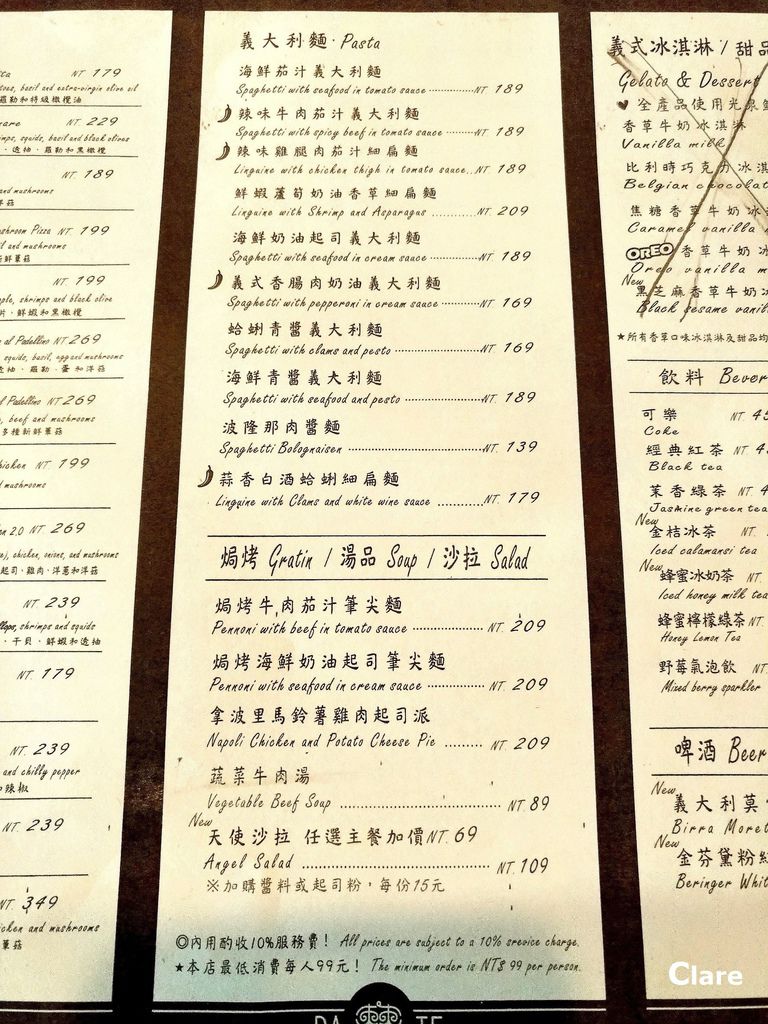 NT 179
basil and extra-virgin olive oil
羅勒和特級橄欖油
NT 229
squids, basil and black olives
透抽、羅勒和黑橄欖
NT 189
and mushrooms
洋菇
Pizza NT 199
and mushrooms
鮮蕈菇
NT 199
shrimps and black olive
鮮蝦和黑橄欖
al Padellino NT 269
squids, basil, egg and mushrooms
透抽、羅勒、蛋和洋菇
al Padellino NT 269
beef and mushrooms
多種新鮮蕈菇
NT 199
mushrooms
2.0 NT 269
chicken, onions, and mushrooms
起司、雞肉、洋蔥和洋菇
NT 239
shrimps and squids
干貝、鮮蝦和透抽
NT 179
NT 239
and chilly pepper
辣椒
NT 239
NT 349
and mushrooms
蕈菇
義大利麵·Pasta
海鮮茄汁義大利麵
Spaghetti with seafood in tomato sauce ············NT 189
辣味牛肉茄汁義大利麵
Spaghetti with spicy beef in tomato sauce ··········NT 189
辣味雞腿肉茄汁細扁麵
Linguine with chicken thigh in tomato sauce...NT 189
鮮蝦蘆筍奶油香草細扁麵
Linguine with Shrimp and Asparagus ............NT. 209
海鮮奶油起司義大利麵
Spaghetti with seafood in cream sauce ············NT. 189
義式香腸肉奶油義大利麵
Spaghetti with pepperoni in cream sauce ········NT. 169
蛤蜊青醬義大利麵
Spaghetti with clams and pesto ···················NT. 169
海鮮青醬義大利麵
Spaghetti with seafood and pesto ················NT. 189
波隆那肉醬麵
Spaghetti Bolognaisen ·····························NT. 139
蒜香白酒蛤蜊細扁麵
Linguine with Clams and white wine sauce ............NT. 179
焗烤 Gratin / 湯品 Soup / 沙拉 Salad
焗烤牛肉茄汁筆尖麵
Pennoni with beef in tomato sauce ··················NT. 209
焗烤海鮮奶油起司筆尖麵
Pennoni with seafood in cream sauce ·············NT. 209
拿波里馬鈴薯雞肉起司派
Napoli Chicken and Potato Cheese Pie .........NT. 209
蔬菜牛肉湯
Vegetable Beef Soup ......................................NT. 89
New
天使沙拉 任選主餐加價NT. 69
Angel Salad .............................................NT. 109
※加購醬料或起司粉，每份15元
◎內用酌收10%服務費！ All prices are subject to a 10% srevice charge.
★本店最低消費每人99元！ The minimum order is NT$ 99 per person.
義式冰淇淋 / 甜品
Gelato & Dessert
♥ 全產品使用光泉鮮
香草牛奶冰淇淋
Vanilla milk
比利時巧克力冰淇
Belgian chocolat
焦糖香草牛奶冰
Caramel vanilla
OREO 香草牛奶冰
Oreo vanilla m
New
黑芝麻香草牛奶冰
Black sesame vanil
★所有香草口味冰淇淋及甜品均
飲料 Bever
可樂 NT 45
Coke
經典紅茶 NT 4
Black tea
茉香綠茶 NT. 4
Jasmine green tea
New
金桔冰茶 NT.
Iced calamansi tea
New
蜂蜜冰奶茶 NT
Iced honey milk tea
蜂蜜檸檬綠茶NT.
Honey Lemon Tea
野莓氣泡飲 NT.
Mixed berry sparkler
啤酒 Beer
New
義大利莫
Birra Moret
New
金芬黛粉紅
Beringer Whit
Clare